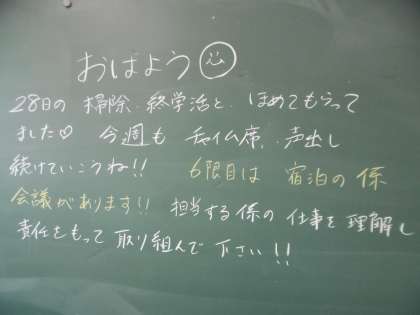 おはよう
28日の 掃除・終学活と、ほめてもらって
ました♡ 今週も チャイム席、声出し
続けていこうね!! 6限目は 宿泊の係
会議があります!! 担当する係の 仕事を 理解し
責任をもって 取り組んで 下さい!!